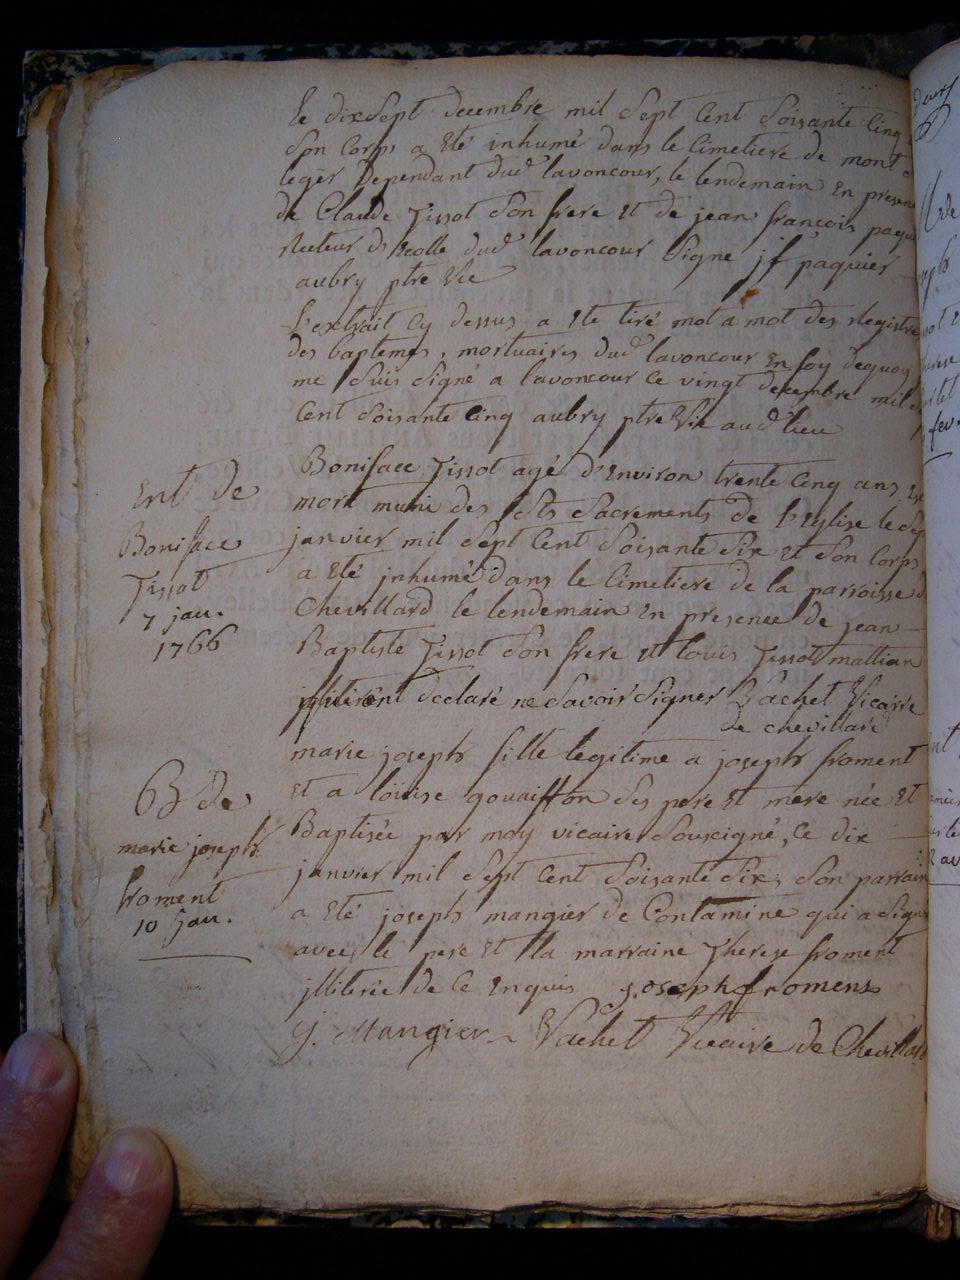 le dixsept decembre mil sept cent soisante cinq
son corps a eté inhumé dans le cimetiere de mont
leger dependant dud lavoncour, le lendemain en presen
de Claude Tissot son frere et de jean francois paqui
recteur d'ecolle dud lavoncour signe j f paquier
aubry ptre vic
l'extrait cy dessus a ete tiré mot a mot des registre
des baptemes, mortuaires dud lavoncour en foy dequoy
me suis signé a lavoncour ce vingt decembre mil
cent soisante cinq aubry ptre vic aud lieu
Ent de
Boniface
Tissot
7 jau.
1766
Boniface Tissot agé d'environ trente cinq ans est
mort muni des sts sacrements de l'eglise le sep
janvier mil sept cent soisante six et son corps
a eté inhumé dans le cimetiere de la parroisse d
Chevillard le lendemain en presence de jean
Baptiste Tissot son frere et louis Tissot mattian
jlliterés ont declaré ne savoir signer Vachet Vicaire
de chevillard
B de
marie joseph
froment
10 jau.
marie joseph fille legitime a joseph froment
et a loüise gouaiffon ses pere et mere née et
Baptisée par moy vicaire soussigné, ce dix
janvier mil sept cent soisante six, son parrain
a eté joseph mangier de Contamine qui a signe
avec le pere et la marraine Therese froment
jlliterée de ce enquis joseph froment
J. Mangier Vachet Vicaire de Chevillard